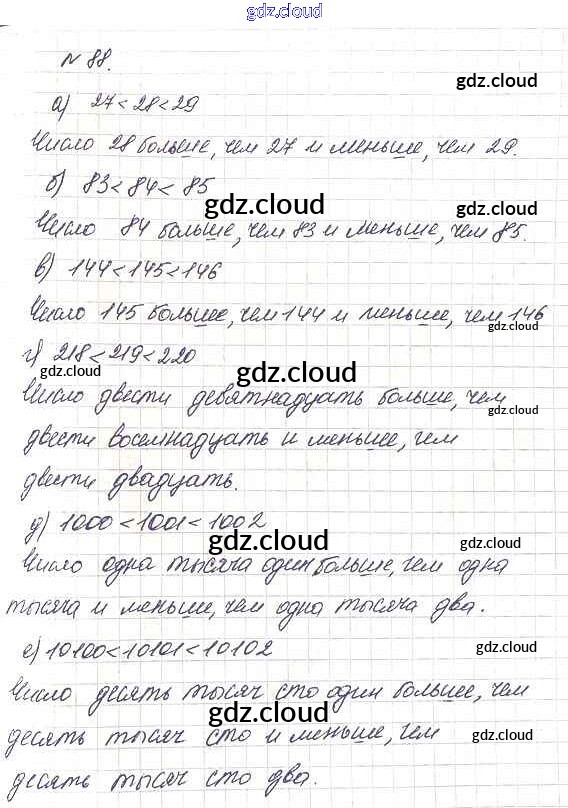 gdz.cloud
N 88.
gdz.cloud
а) 27<28<29
Число 28 больше, чем 27 и меньше, чем 29.
б) 83<84<85
gdz.cloud
gdz.cloud
Число 84 больше, чем 83 и меньше, чем 85.
в) 144<145<146
Число 145 больше, чем 144 и меньше, чем 146
gdz.cloud
г) 218<219<220
gdz.cloud
gdz.cloud
Число двести девятнадцать больше, чем
gdz.cloud
двести восемнадцать и меньше, чем
двести двадцать.
д) 1000<1001<1002
gdz.cloud
gdz.cloud
Число одна тысяча один больше, чем одна
тысяча и меньше, чем одна тысяча два.
е) 10100<10101<10102
gdz.cloud
Число десять тысяч сто один больше, чем
gdz.cloud
десять тысяч сто и меньше, чем
gdz.cloud
десять тысяч сто два.